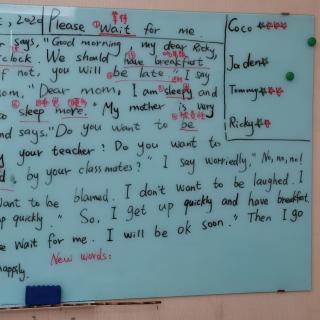 , 2020 Please wait for me.
says, "Good morning, my dear Ricky,
o'clock. We should have breakfast
f not, you will be late." I say
om, "Dear mom, I am sleepy and
to sleep more. My mother is very
nd says. "Do you want to be
your teacher? Do you want to
by your classmates?" I say worriedly, "No, no, no!
want to be blamed. I don't want to be laughed. I
up quickly." So, I get up quickly and have breakfast.
e wait for me. I will be ok soon." Then I go
happily.
New words:
Coco
Jaden
Tommy
Ricky